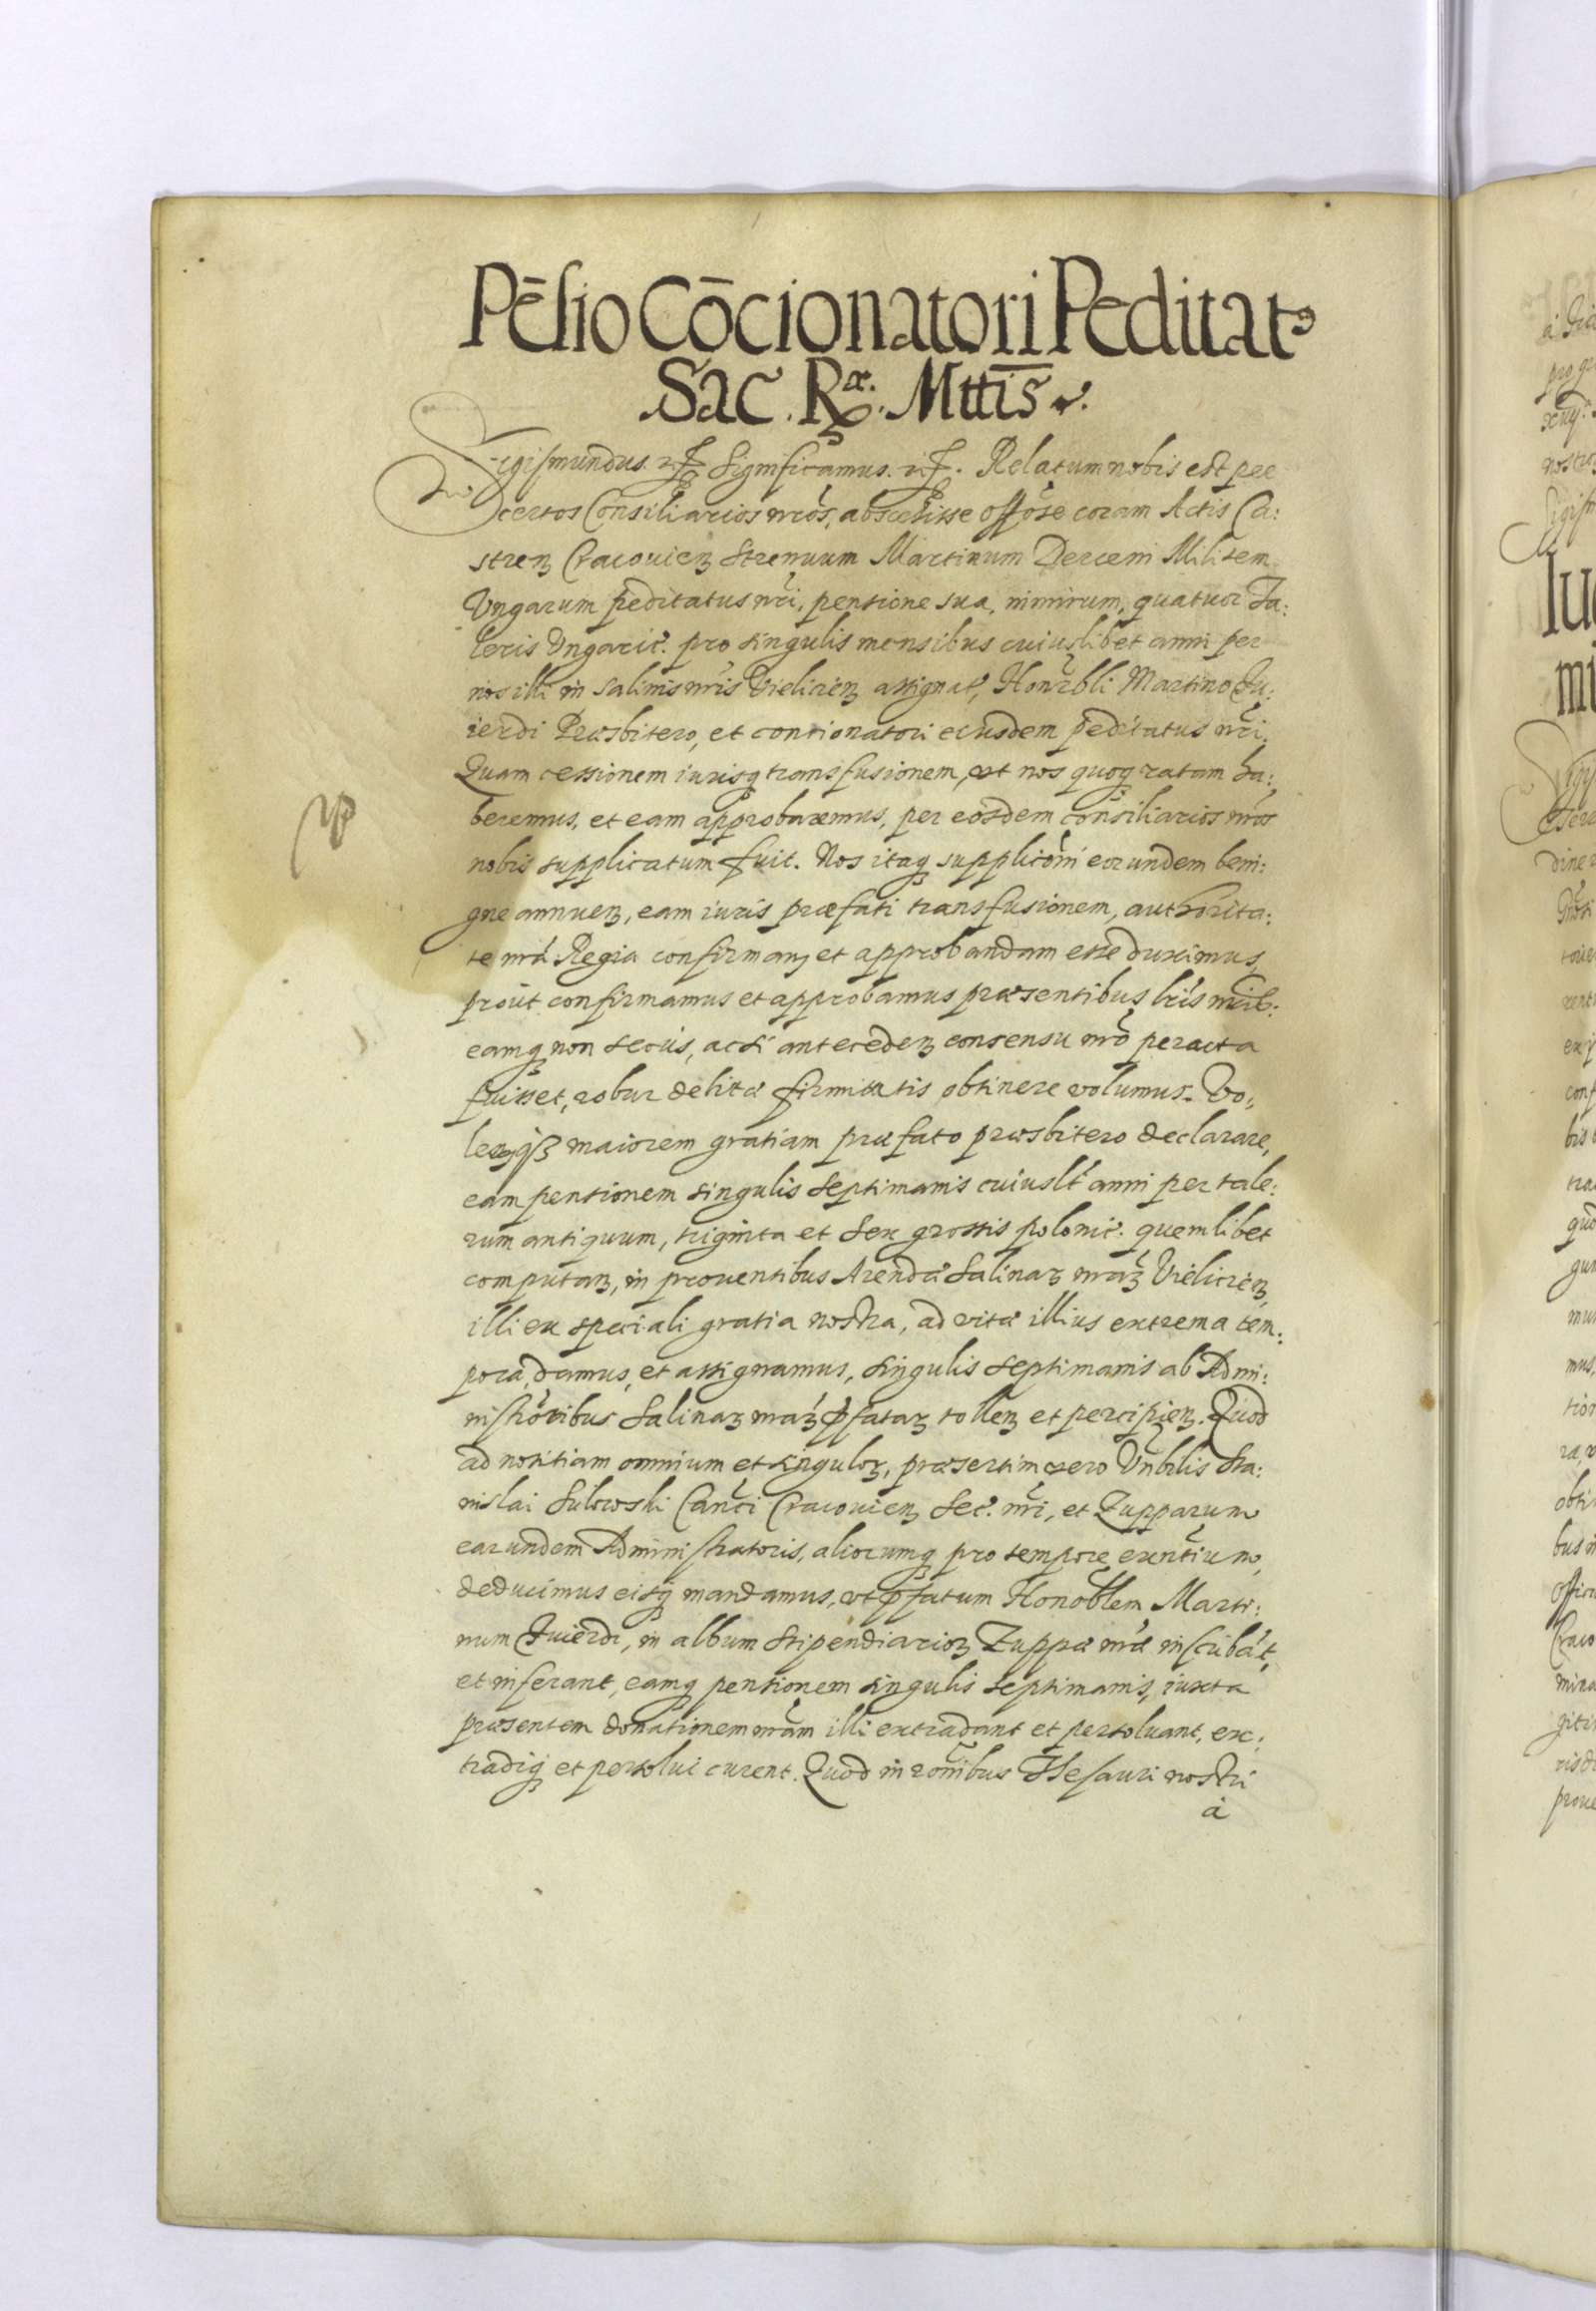 Pēsio Cōcionatori Peditatꝰ
Sac. Rӕ. Mttis
Sigismundus. etc. Significamus. etc. Relatum nobis est per
certos Consiliarios nros, abscessisse offose coram Actis Ca:
stren Cracouien Strenuum Martinum Derceni Militem
Vngarum peditatus nri, pensione sua, nimirum, quatuor Ta:
leris Vngaric. pro singulis mensibus cuiuslibet anni per
nos illi in Salinis nris Vielicien assignat, Honrbli Martino Qu:
ierdi Præsbitero, et contionatori eiusdem peditatus nri.
Quam cessionem iurisq transfusionem, vt nos quoq ratam ha:
beremus, et eam approbaremus, per eosdem consiliarios nros
nobis supplicatum fuit. Nos itaq suppliconi eorundem beni:
gne annuen, eam iuris præfati transfusionem, authorita:
te nra Regia confirman et approbandam esse duximus,
prout confirmamus et approbamus præsentibus lris nris:
eamq non secus, ac si anteceden consensu nro peracta
fuisset, robur debitæ firmitatis obtinere volumus. Vo:
lenqȝ maiorem gratiam præfato præsbitero declarare,
eam pensionem singulis septimanis cuiuslt anni per tale:
rum antiquum, triginta et sex grossis polonic. quemlibet
computan, in prouentibus Arendæ Salinar nrar Vielicien,
illi ex speciali gratia nostra, ad vitæ illius extrema tem:
pora, damus, et assignamus, singulis septimanis ab Admi:
nistroribus Salinar nrar pfatar tollen et percipien. Quod
ad notitiam omnium et singulor, præsertim vero Vnbrlis Sta:
nislai Sulowski Canci Cracouien Sec. nri, et Zupparum
earundem Administratoris, aliorumq pro tempore exntium,
deducimus eisq mandamus, vt pfatum Honoblem Marti:
num Quierdi, in album Stipendiarior Zuppæ nræ inscribāt,
et inferant, eamq pensionem singulis septimanis, iuxta
præsentem donationem nram illi extradant et persoluant, ex:
tradiq et persolui curent. Quod in ronibus Thesauri nostri
à